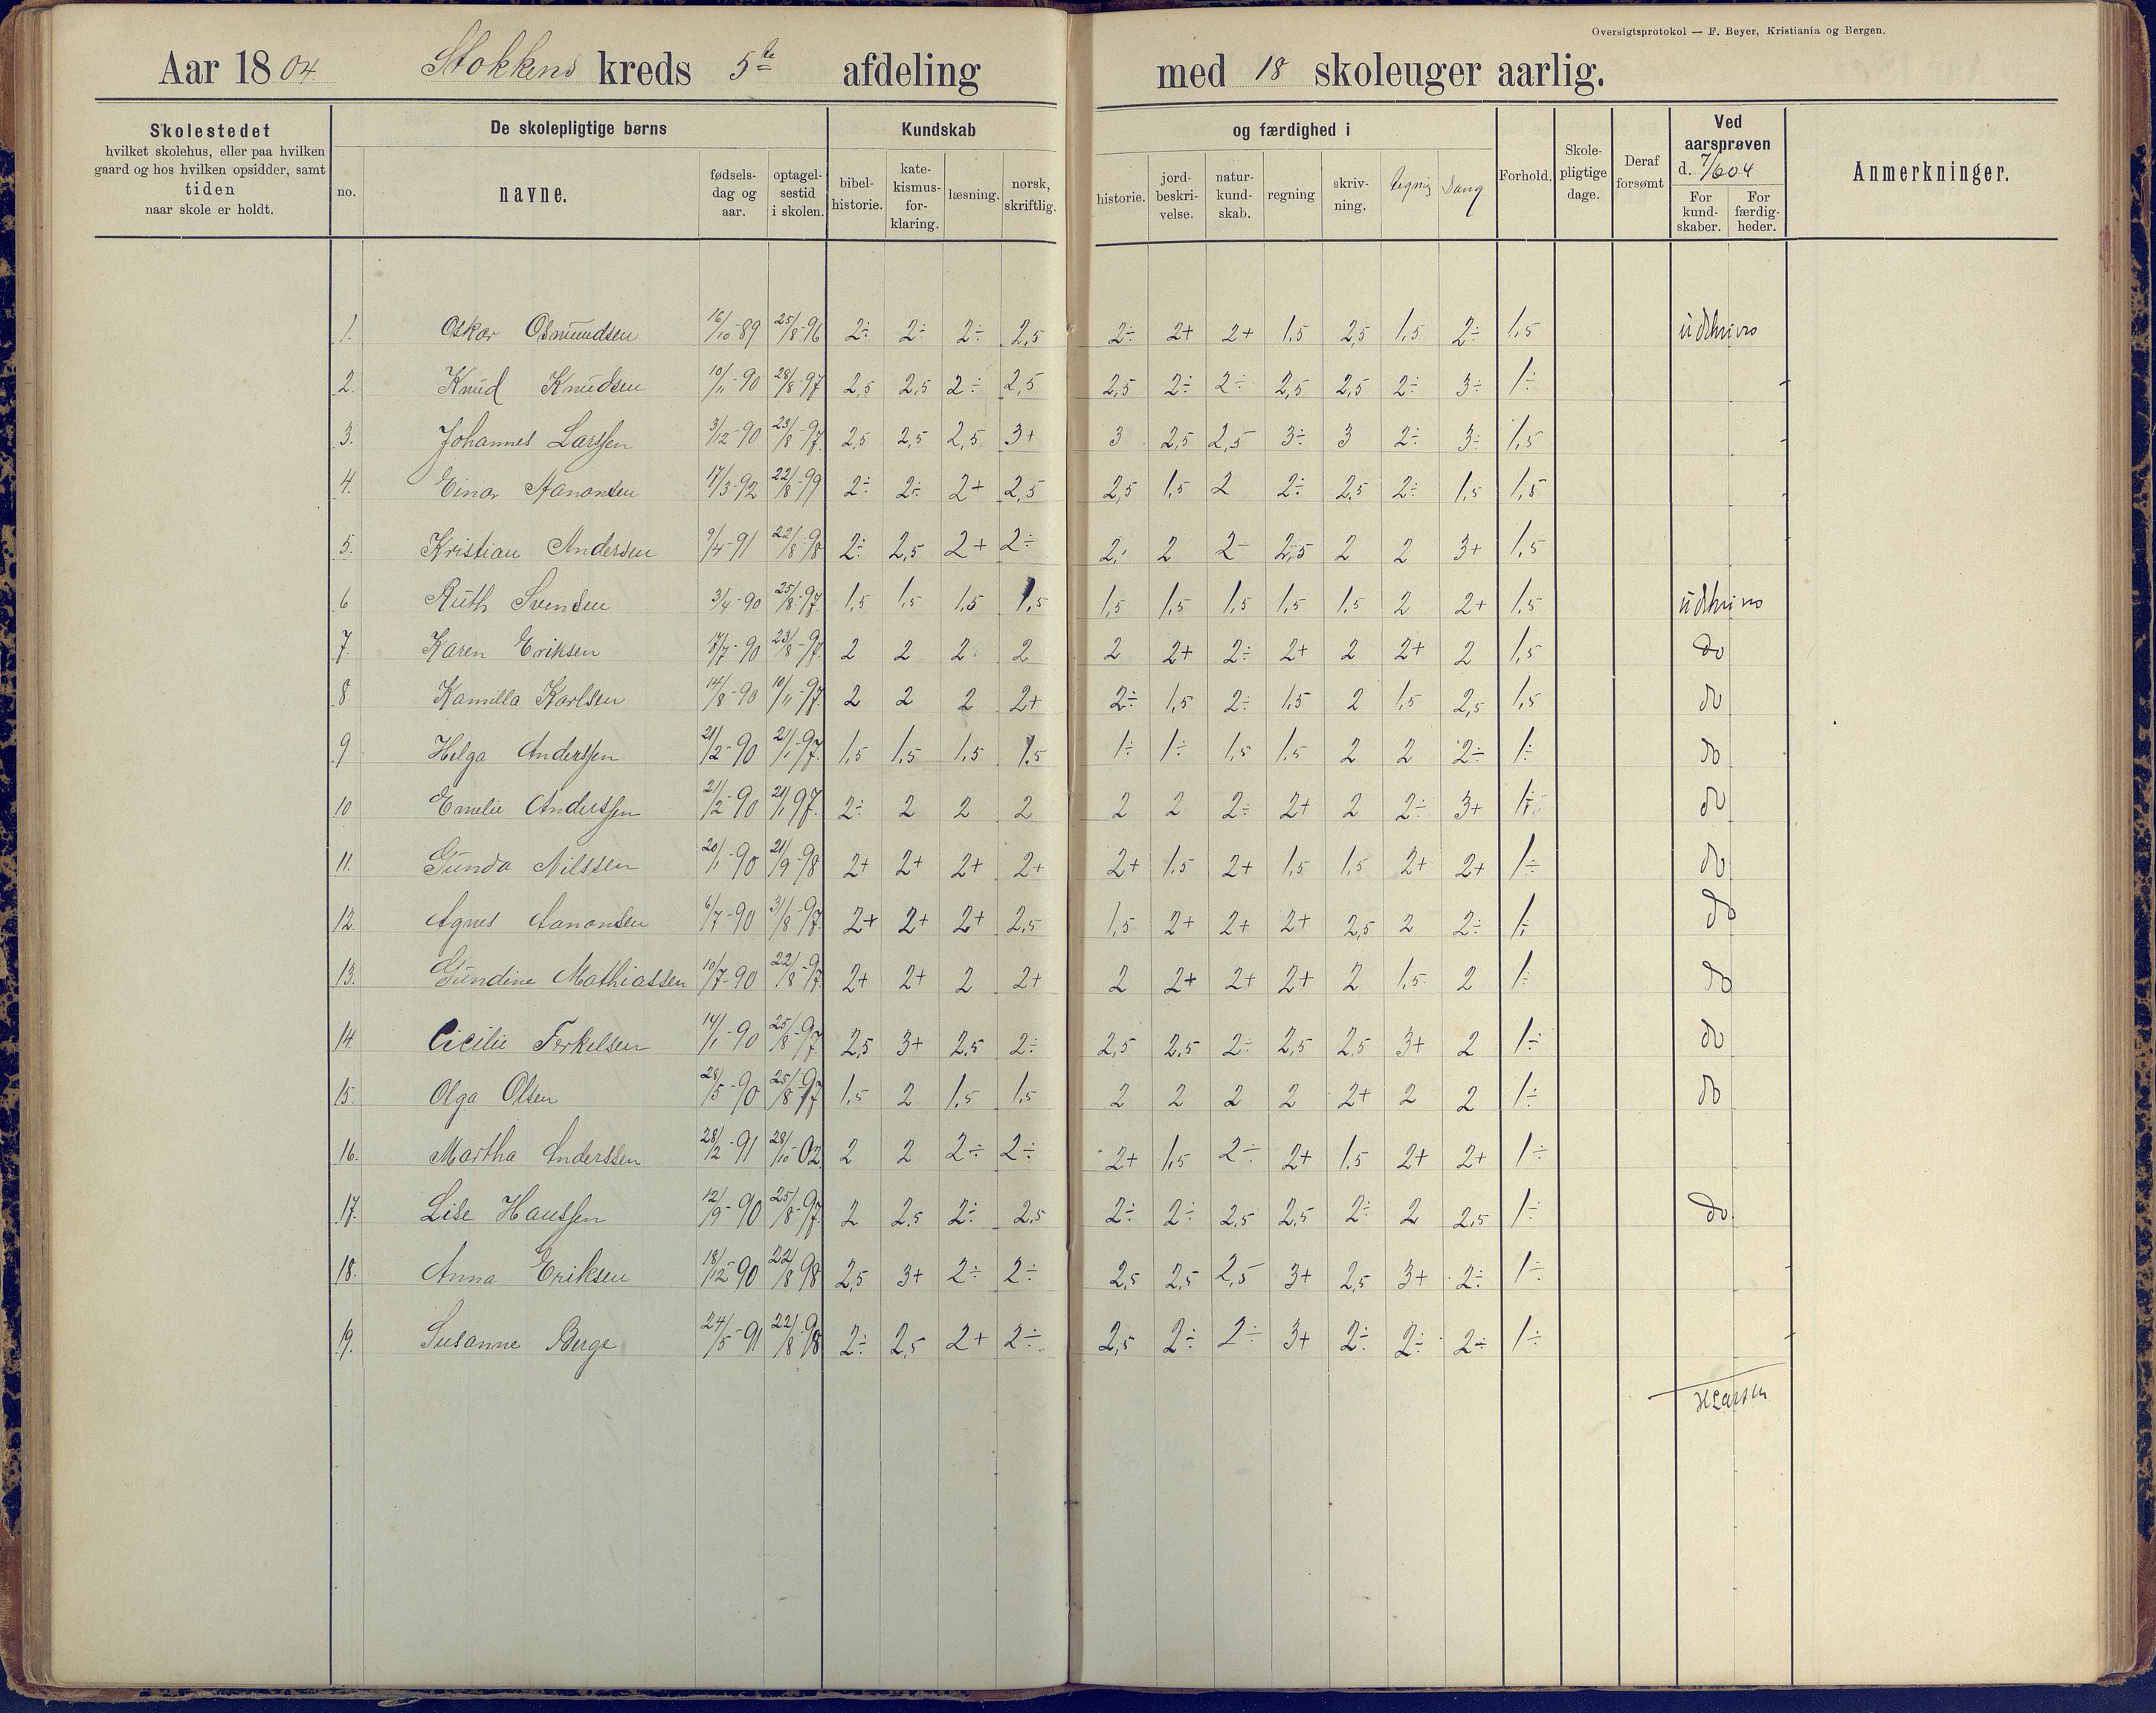 Oversigtsprotokol — F. Beyer, Kristiania og Bergen.
Aar 1804. Stokkens kreds 5te afdeling med 18 skoleuger aarlig.
Skolestedet
hvilket skolehus, eller paa hvilken
gaard og hos hvilken opsidder, samt
tiden
naar skole er holdt.
De skolepligtige børns
no.
navne.
fødsels-
dag og
aar.
optagel-
sestid
i skolen.
Kundskab
bibel-
historie.
kate-
kismus-
for-
klaring.
læsning.
norsk,
skriftlig.
og færdighed i
historie.
jord-
beskri-
velse.
natur-
kund-
skab.
regning
skriv-
ning.
tegning
Sang
Forhold.
Skole-
pligtige
dage.
Deraf
forsømt
Ved
aarsprøven
d. 7/6 04
For
kund-
skaber.
For
færdig-
heder.
Anmerkninger.
1. Oskar Osmundsen 16/10-89 25/8-96 2÷ 2÷ 2÷ 2,5 2÷ 2+ 2+ 1,5 2,5 1,5 2÷ 1,5 udskrives
2. Knud Knudsen 10/11-90 28/8-97 2,5 2,5 2÷ 2,5 2,5 2÷ 2÷ 2,5 2,5 2÷ 3÷ 1÷
3. Johannes Larssen 3/12-90 23/8-97 2,5 2,5 2,5 3+ 3 2,5 2,5 3÷ 3 2÷ 3÷ 1,5
4. Einar Aanonsen 17/3-92 22/8-99 2÷ 2÷ 2+ 2,5 2,5 1,5 2 2÷ 2,5 2÷ 1,5 1,5
5. Kristian Andersen 9/4-91 22/8-98 2÷ 2,5 2+ 2÷ 2÷ 2 2÷ 2,5 2 2 3+ 1,5
6 Ruth Svendsen 3/4-90 25/8-97 1,5 1,5 1,5 1,5 1,5 1,5 1,5 1,5 1,5 2 2+ 1,5 udskrives
7. Karen Eriksen 17/7-90 23/8-97 2 2 2 2 2 2+ 2÷ 2+ 2 2+ 2 1,5 do
8 Kamilla Karlsen 14/8-90 10/11-97 2 2 2 2+ 2÷ 1,5 2÷ 1,5 2 1,5 2,5 1,5 do
9 Helga Anderssen 21/2-90 21/1-97 1,5 1,5 1,5 1,5 1÷ 1÷ 1,5 1,5 2 2 2÷ 1÷ do
10 Emelie Anderssen 21/2-90 21/1 97. 2÷ 2 2 2 2 2 2÷ 2+ 2 2÷ 3+ 1÷ do
11. Gunda Nilssen 20/1-90 21/9-98 2+ 2+ 2+ 2+ 2+ 1,5 2+ 1,5 1,5 2+ 2+ 1÷ do
12. Agnes Aanonsen 6/7-90 31/8-97 2+ 2+ 2+ 2,5 1,5 2+ 2+ 2+ 2,5 2 2÷ 1÷ do
13. Gundine Mathiassen 10/7-90 22/8-97 2+ 2+ 2 2+ 2 2+ 2+ 2+ 2 1,5 2 1÷ do
14. Cicilie Terkelsen 14/1-90 25/8-97 2,5 3+ 2,5 2÷ 2,5 2,5 2÷ 2,5 2,5 3+ 2 1÷ do
15. Olga Olsen 28/5-90 25/8-97 1,5 2 1,5 1,5 2 2 2 2 2+ 2 2 1÷ do
16. Martha Anderssen 28/2-91 28/10-02 2 2 2÷ 2÷ 2+ 1,5 2÷ 2+ 1,5 2+ 2+ 1÷
17. Lise Hanssen 12/9-90 25/8-97 2 2,5 2÷ 2,5 2÷ 2÷ 2,5 2,5 2÷ 2 2,5 1÷ do.
18. Anna Eriksen 18/12-90 22/8 98 2,5 3+ 2÷ 2÷ 2,5 2,5 2,5 3+ 2,5 3+ 2÷ 1÷
19. Susanne Berge 24/5-91 22/8-98 2÷ 2,5 2+ 2÷ 2,5 2÷ 2÷ 3+ 2÷ 2÷ 2÷ 1÷
HLarsen